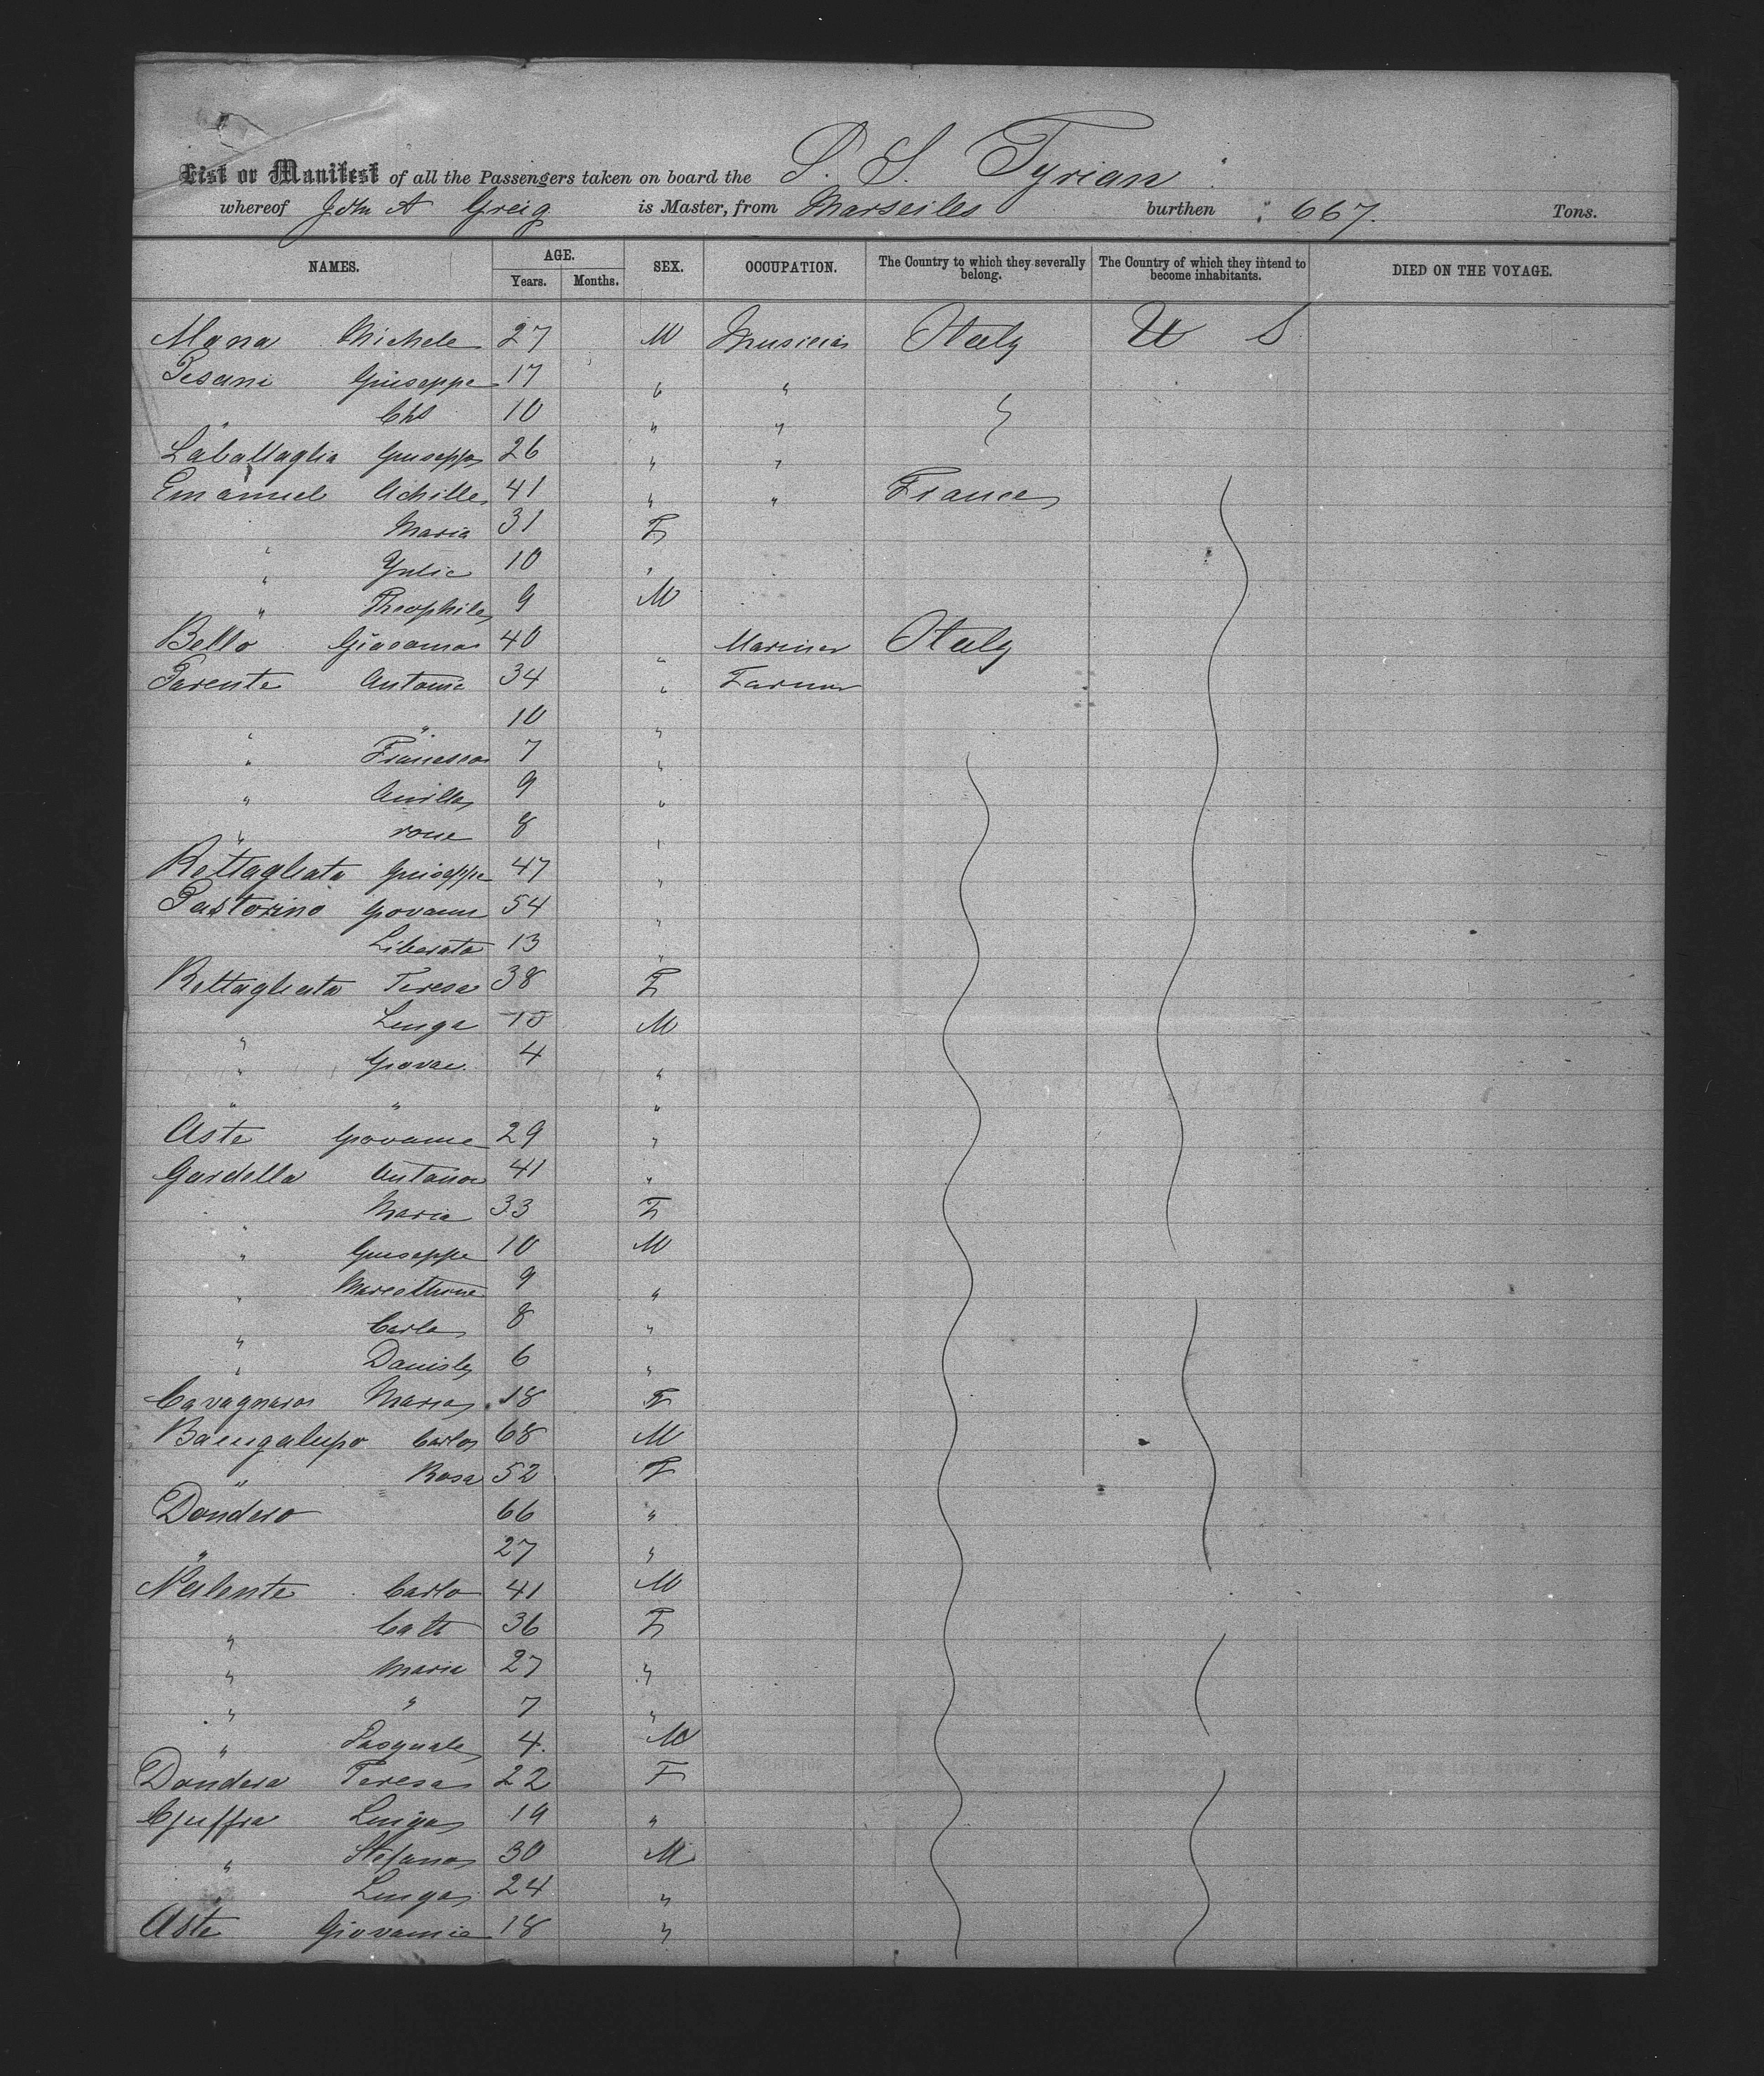 List or Manifest of all the Passengers taken on board the S. S. Tyrian
whereof John A Greig is Master, from Marseiles burthen 667. Tons.
NAMES. AGE. SEX. OCCUPATION. The Country to which they severally belong. The Country of which they intend to become inhabitants. DIED ON THE VOYAGE.
Years. Months.
Mana Michele 27 M Musician Italy U S
Pisani Giuseppe 17 " "
" Chs 10 " "
Labattaglia Giuseppe 26 " "
Emanuel Achille 41 " " France
" Maria 31 F
" Yulie 10 "
" Theophile 9 M
Bello Giacomo 40 " Mariner Italy
Parente Antonio 34 " Farmer
" " 10 "
" Francesco 7 "
" 9 "
" 8 "
Rettagliata Guiseppe 47 "
Pastorino Giovanni 54 "
Liberata 13 "
Rettagliata Teresa 38 F
" Luiga 10 M
" Giovae 4 "
" " "
Aste Giovanne 29 "
Gardella Antonio 41 "
" Maria 33 F
" Giuseppe 10 M
" 9 "
" Carlo 8 "
" Daniele 6 "
Cavagnaro Maria 18 F
Bacigalupo Carlo 68 M
" Rosa 52 F
Dondero 66 "
" 27 "
Valente Carlo 41 M
" Cath 36 F
" Maria 27 "
" " 7 "
" Pasquale 4. M
Dondera Teresa 22 F
Luiga 19 "
" Stefano 30 M
" Luiga 24 "
Aste Giovannie 18 "